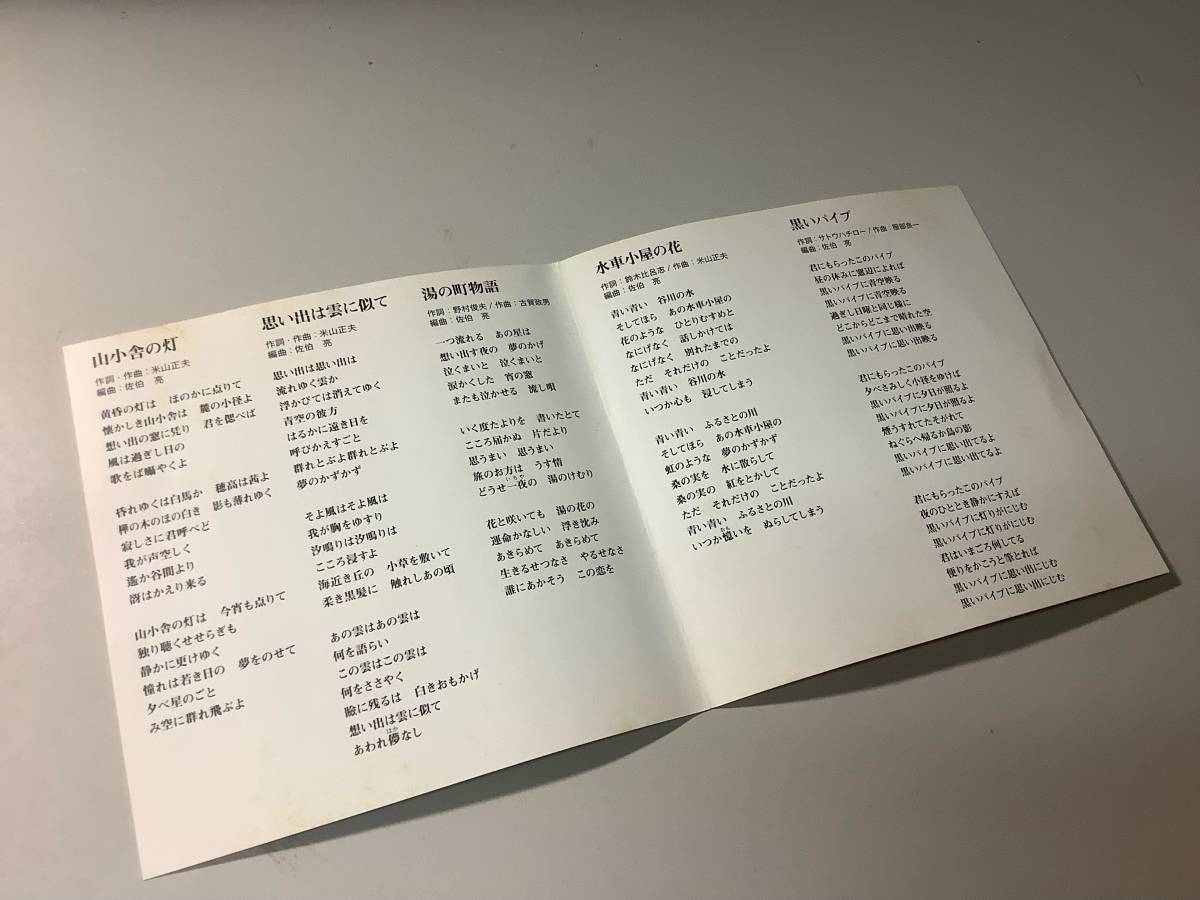 山小舎の灯
作詞・作曲：米山正夫
編曲：佐伯 亮
黄昏の灯は ほのかに点りて
懐かしき山小舎は 麓の小径よ
想い出の窓に凭り 君を偲べば
風は過ぎし日の
歌をば囁やくよ
昏れゆくは白馬か 穂高は茜よ
樺の木のほの白き 影も薄れゆく
寂しさに君呼べど
我が声空しく
遙か谷間より
谺はかえり来る
山小舎の灯は 今宵も点りて
独り聴くせせらぎも
静かに更けゆく
憧れは若き日の 夢をのせて
夕べ星のごと
み空に群れ飛ぶよ
思い出は雲に似て
作詞・作曲：米山正夫
編曲：佐伯 亮
思い出は思い出は
流れゆく雲か
浮かびては消えてゆく
青空の彼方
はるかに遠き日を
呼びかえすごと
群れとぶよ群れとぶよ
夢のかずかず
そよ風はそよ風は
我が胸をゆすり
汐鳴りは汐鳴りは
こころ浸すよ
海近き丘の 小草を敷いて
柔き黒髪に 触れしあの頃
あの雲はあの雲は
何を語らい
この雲はこの雲は
何をささやく
瞼に残るは 白きおもかげ
想い出は雲に似て
あわれ儚なし
湯の町物語
作詞：野村俊夫/作曲：古賀政男
編曲：佐伯 亮
一つ流れる あの星は
想い出す夜の 夢のかげ
泣くまいと 泣くまいと
涙かくした 宵の窓
またも泣かせる 流し唄
いく度たよりを 書いたとて
こころ届かぬ 片だより
思うまい 思うまい
旅のお方は うす情
どうせ一夜の 湯のけむり
花と咲いても 湯の花の
運命かなしい 浮き沈み
あきらめて あきらめて
生きるせつなさ やるせなさ
誰にあかそう この恋を
水車小屋の花
作詞：鈴木比呂志/作曲：米山正夫
編曲：佐伯 亮
青い青い 谷川の水
そしてほら あの水車小屋の
花のような ひとりむすめと
なにげなく 話しかけては
なにげなく 別れたまでの
ただ それだけの ことだったよ
青い青い 谷川の水
いつか心も 浸してしまう
青い青い ふるさとの川
そしてほら あの水車小屋の
虹のような 夢のかずかず
桑の実を 水に散らして
桑の実の 紅をとかして
ただ それだけの ことだったよ
青い青い ふるさとの川
いつか憶いを ぬらしてしまう
黒いパイプ
作詞：サトウハチロー/作曲：服部良一
編曲：佐伯 亮
君にもらったこのパイプ
昼の休みに窓辺によれば
黒いパイプに青空映る
黒いパイプに青空映る
過ぎし日曜と同じ様に
どこからどこまで晴れた空
黒いパイプに思い出映る
黒いパイプに思い出映る
君にもらったこのパイプ
夕べさみしく小径をゆけば
黒いパイプに夕日が照るよ
黒いパイプに夕日が照るよ
煙うすれてたそがれて
ねぐらへ帰るか鳥の影
黒いパイプに思い出てるよ
黒いパイプに思い出てるよ
君にもらったこのパイプ
夜のひととき静かにすえば
黒いパイプに灯りがにじむ
黒いパイプに灯りがにじむ
君はいまごろ何してる
便りをかこうと筆とれば
黒いパイプに思い出にじむ
黒いパイプに思い出にじむ